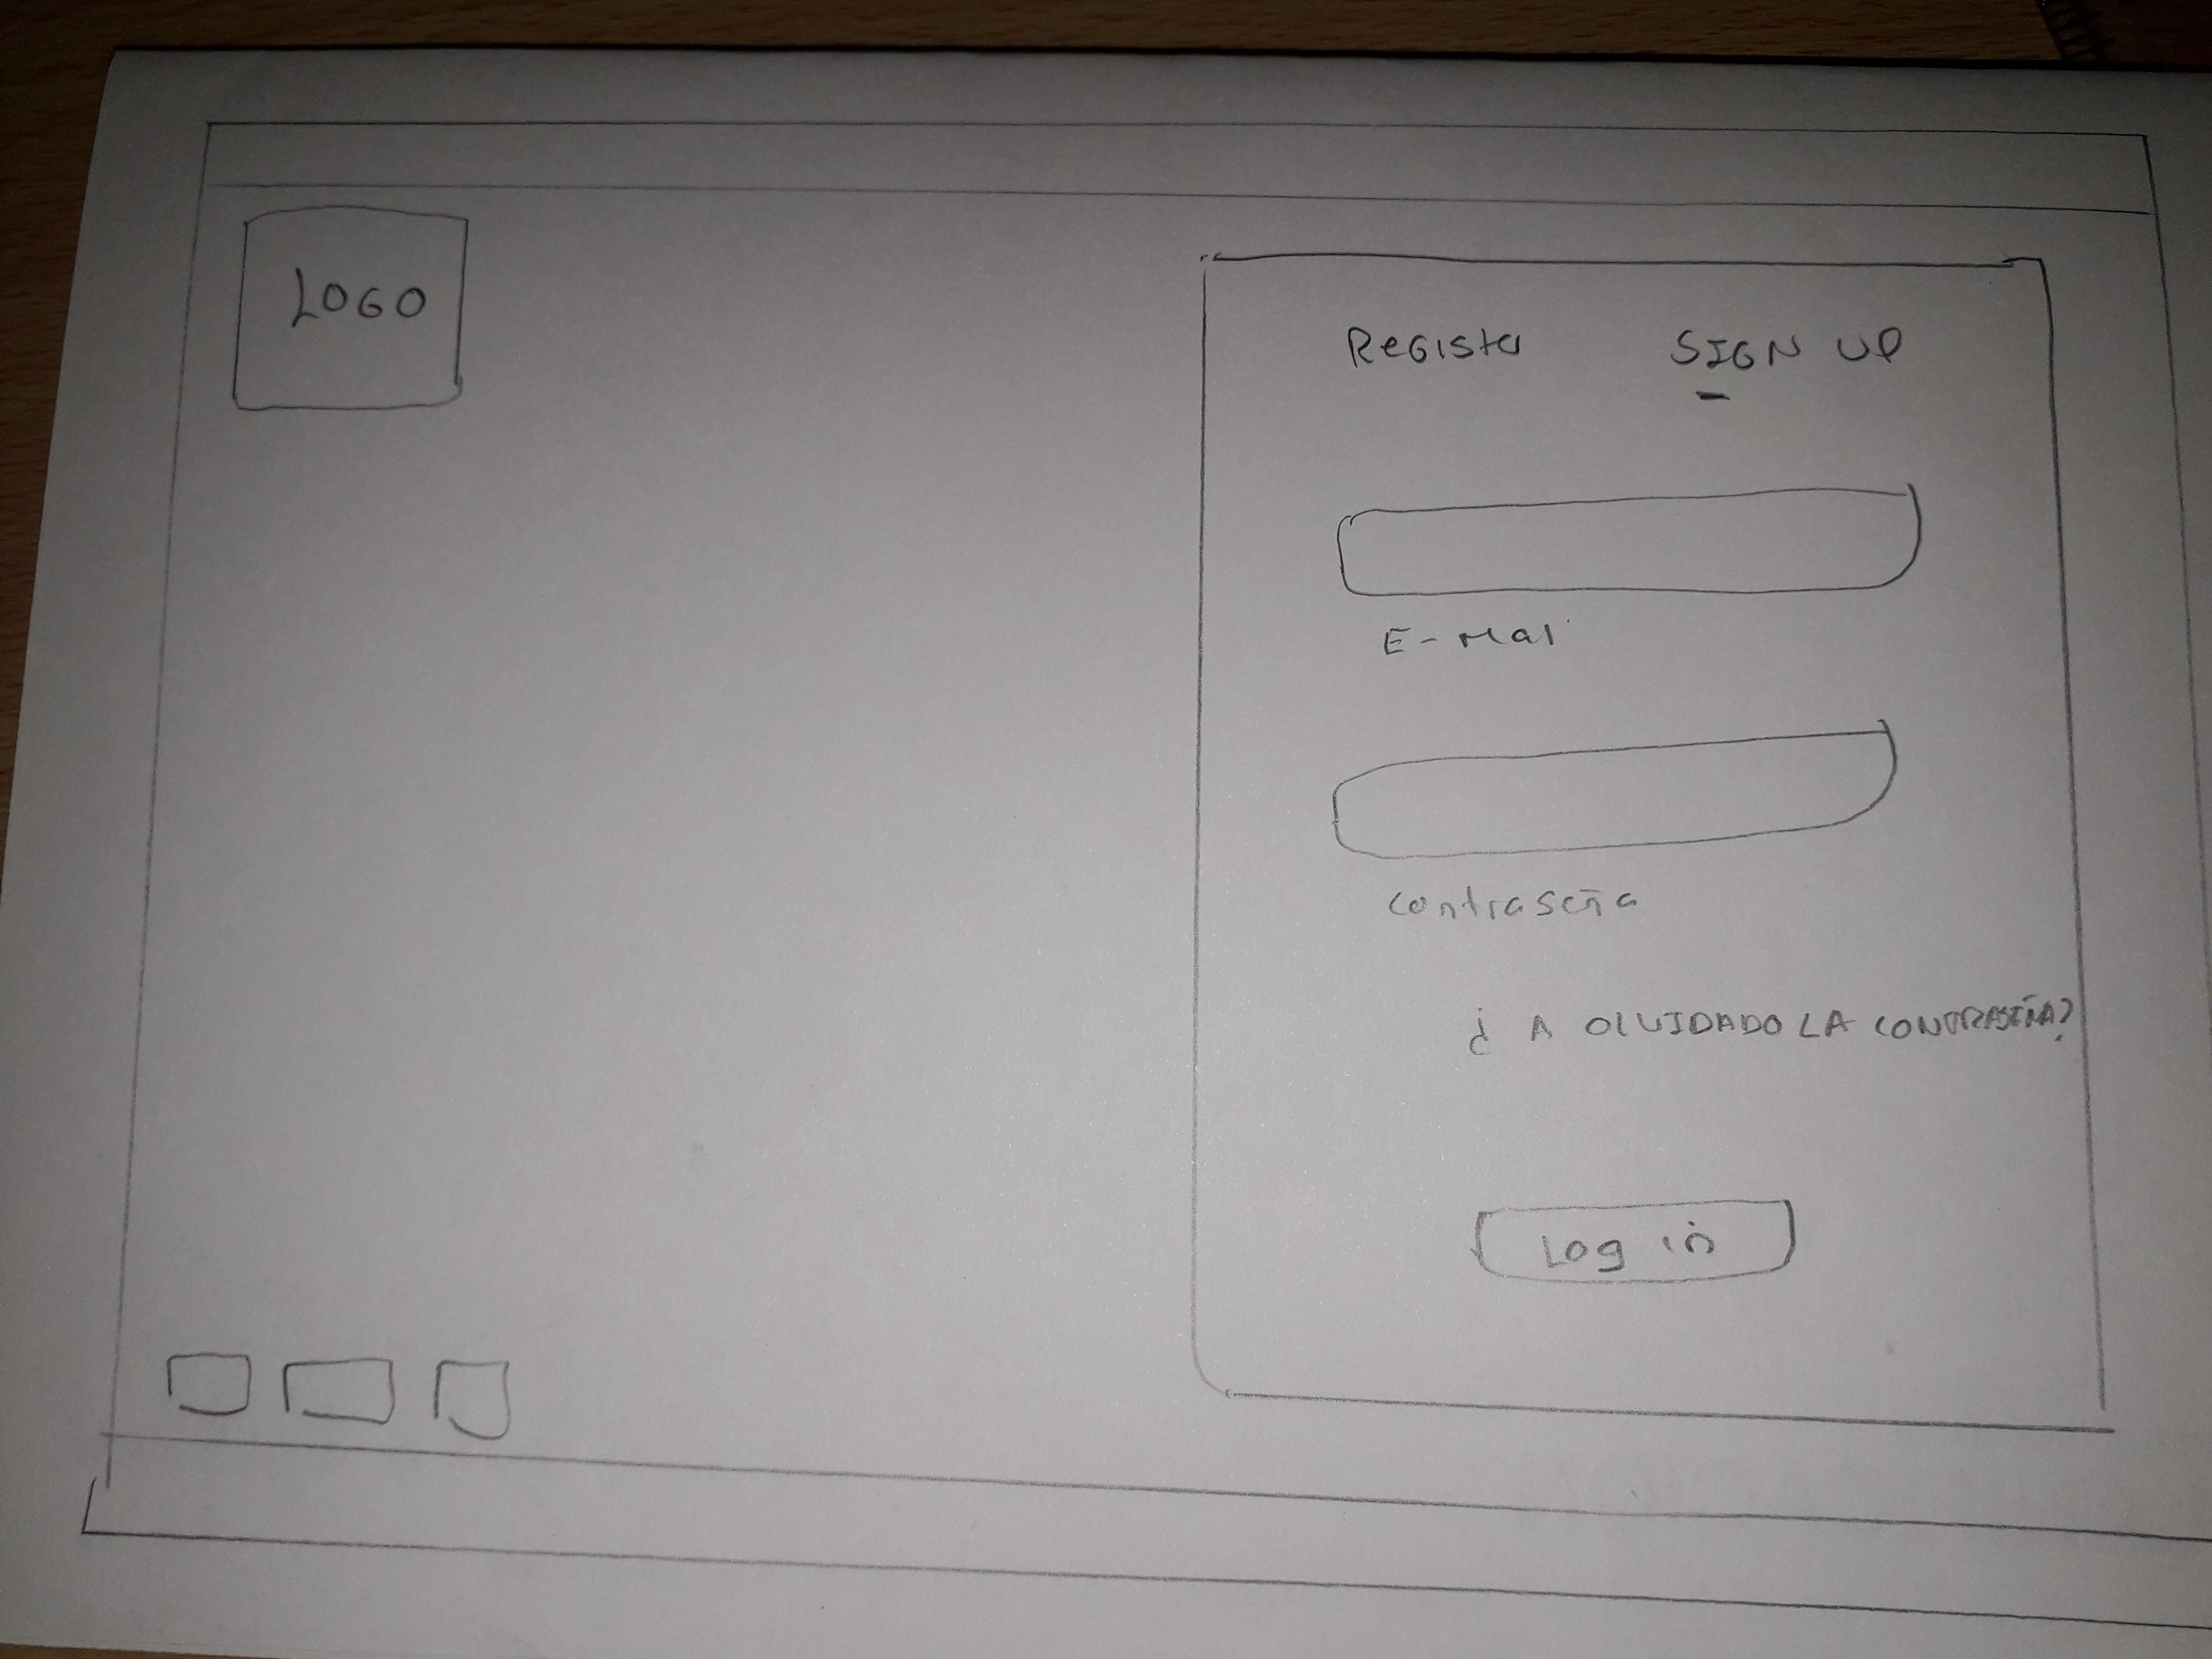 LOGO
Register SIGN UP
E-Mail
contraseña
¿ A OLVIDADO LA CONTRASEÑA?
Log in